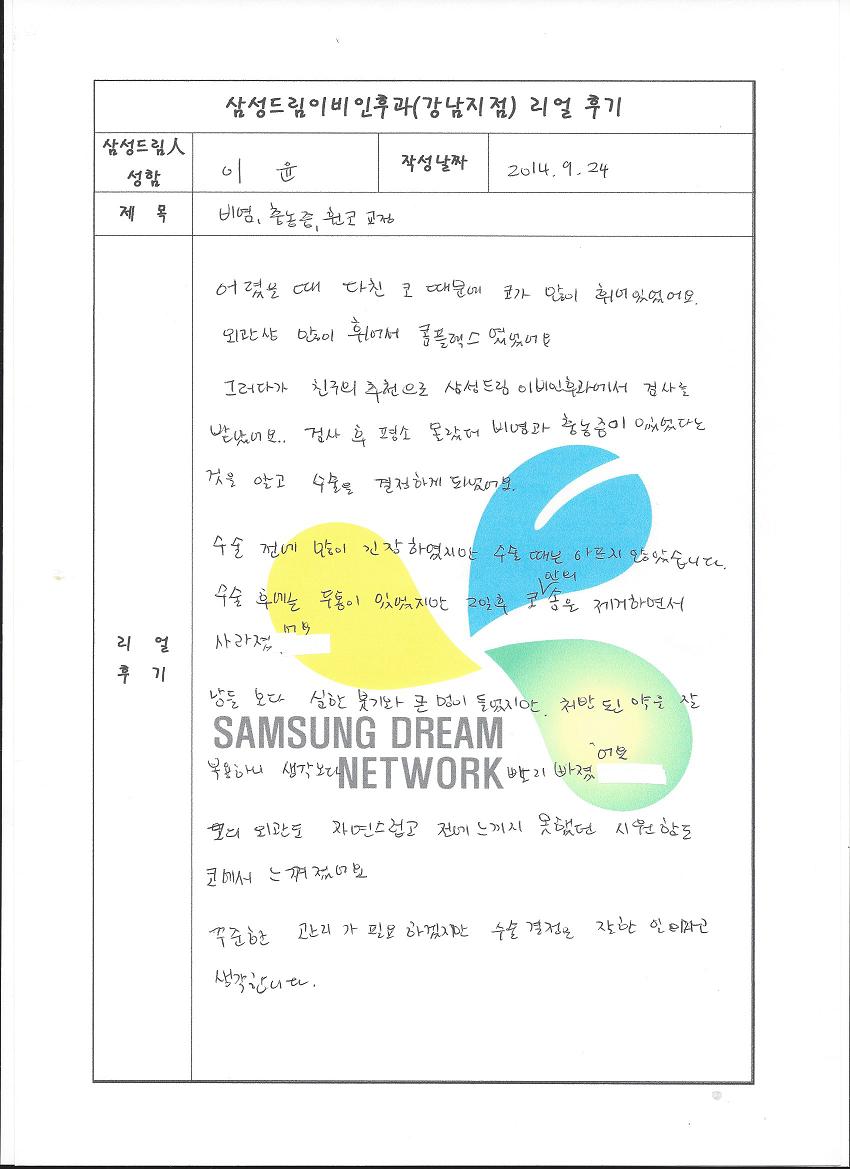 삼성드림이비인후과(강남지점) 리얼 후기
삼성드림人 성함
이 윤
작성날짜
2014. 9. 24
제 목
비염, 충농증, 휜코 교정
리 얼 후 기
어렸을 때 다친 코 때문에 코가 많이 휘어있었어요.
외관상 많이 휘어서 콤플렉스 였었어요
그러다가 친구의 추천으로 삼성드림 이비인후과에서 검사를
받았어요.. 검사 후 평소 몰랐던 비염과 충농증이 있었다는
것을 알고 수술을 결정하게 되었어요.
수술 전에 많이 긴장하였지만 수술 때는 아프지 않았습니다.
수술 후에는 두통이 있었지만 2일후 코안의 솜을 제거하면서
사라졌어요.
남들 보다 심한 붓기와 큰 멍이 들었지만. 처방 된 약을 잘
SAMSUNG DREAM
NETWORK
복용하니 생각보다 빨리 빠졌어요
코의 외관도 자연스럽고 전에 느끼지 못했던 시원함도
코에서 느껴졌어요
꾸준한 관리가 필요 하겠지만 수술결정은 잘한 일이라고
생각합니다.